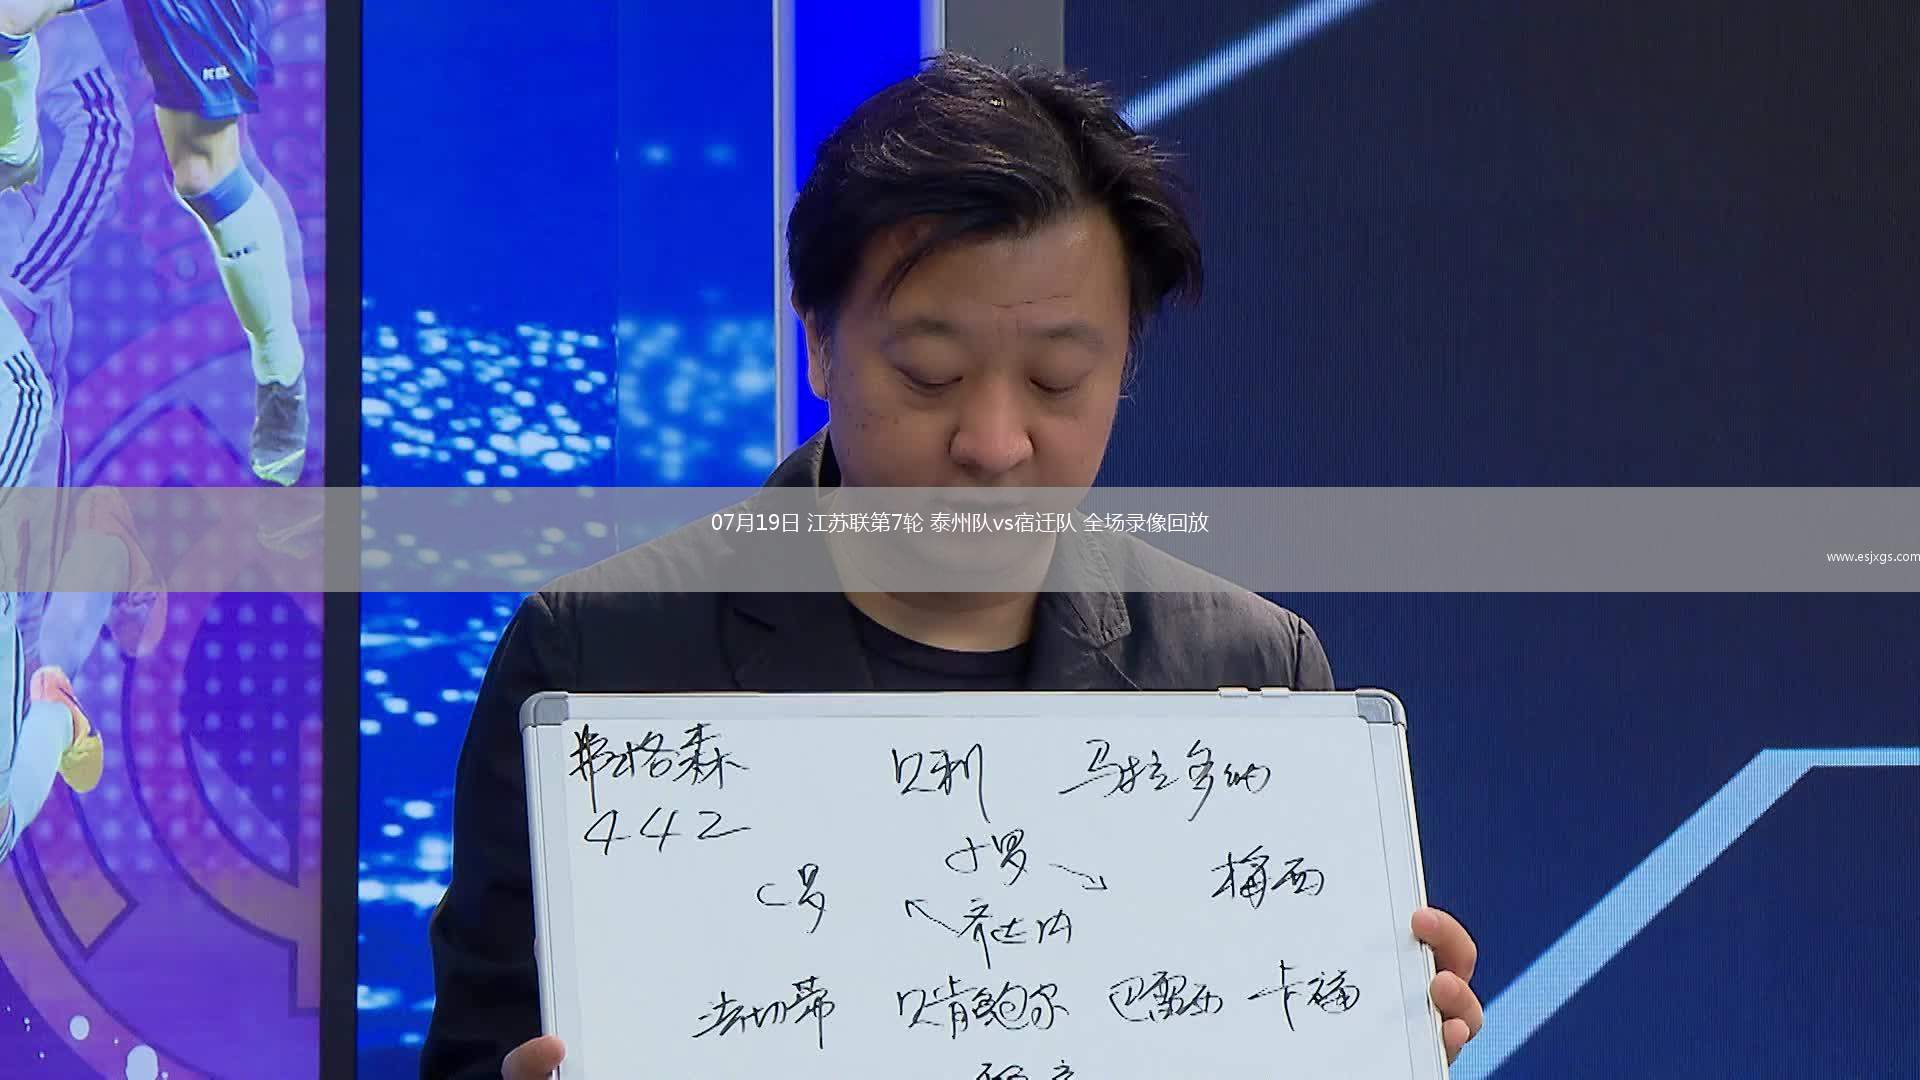 07月19日 江苏联第7轮 泰州队vs宿迁队 全场录像回放
www.esjxgs.com
弗格森 贝利 马拉多纳
442
小罗
C罗 梅西
齐达内
法切蒂 贝肯鲍尔 巴雷西 卡福